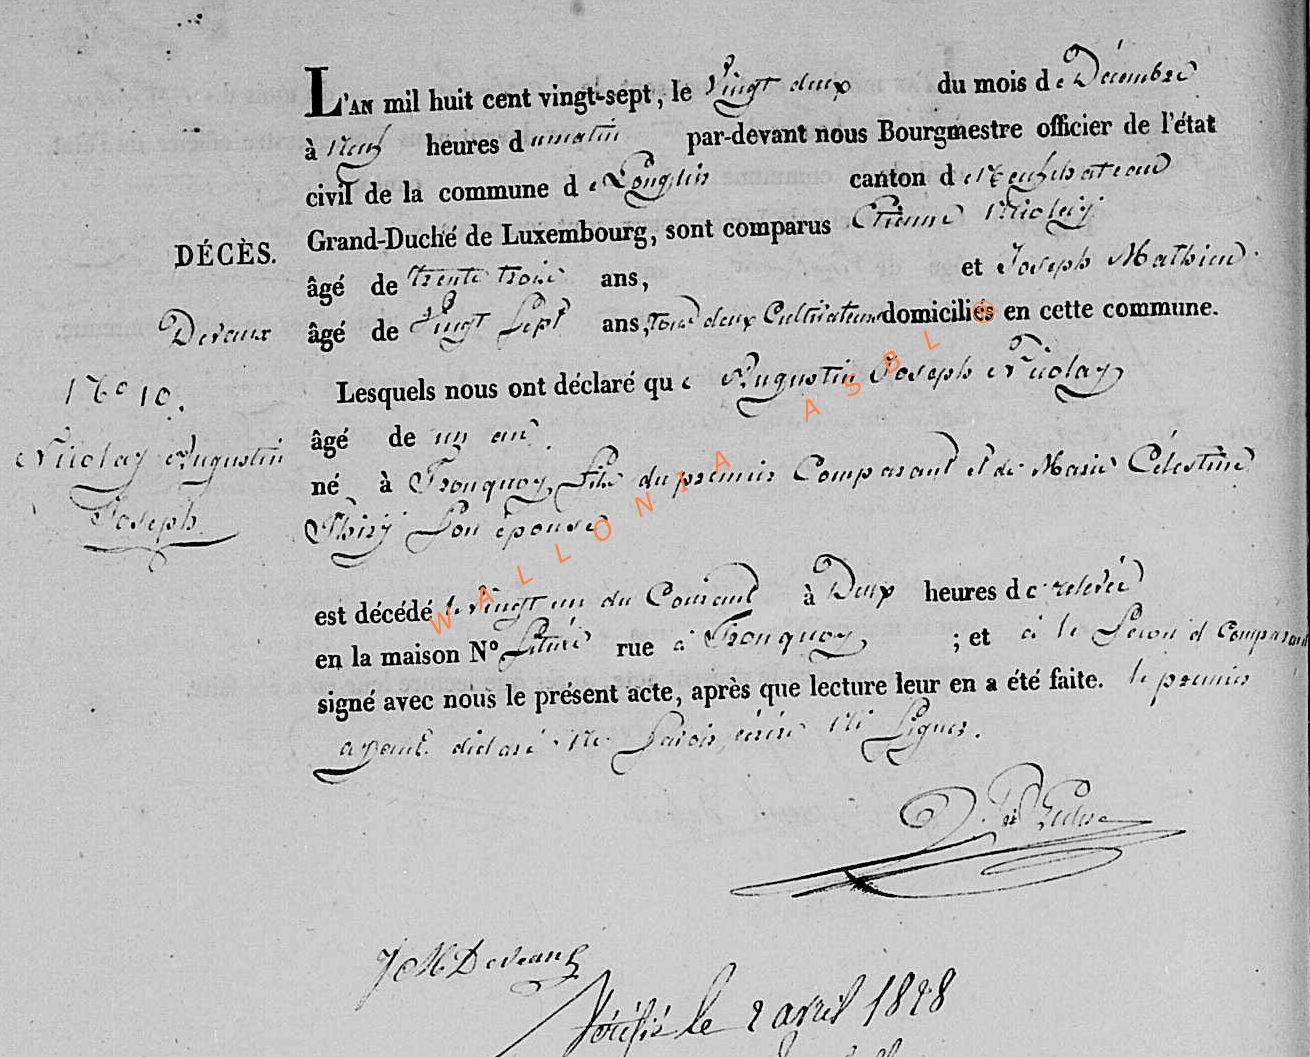 L'AN mil huit cent vingt-sept, le Vingt deux du mois de Décembre
à Neuf heures du matin par-devant nous Bourgmestre officier de l'état
civil de la commune de Longlier canton de Neufchateau
DÉCÈS. Grand-Duché de Luxembourg, sont comparus Etienne Nicolay
âgé de trente trois ans, et Joseph Mathieu
Devaux âgé de Vingt Sept ans, Tous deux Cultivateurs domiciliés en cette commune.
No 10. Lesquels nous ont déclaré que Augustin Joseph Nicolay
âgé de un an
Nicolay Augustin né à Tronquoy, fils du premier Comparant et de Marie Célestine
Joseph Thiry Son épouse
est décédé le vingt un du Courant à Deux heures de relevée
en la maison No Située rue à Tronquoy, ; et à le Second Comparant
signé avec nous le présent acte, après que lecture leur en a été faite. le premier
ayant déclaré Ne Savoir écrire Ni Signer.
J M Devaux
Vérifié le 2 avril 1828
WALLONIA ASBL ©